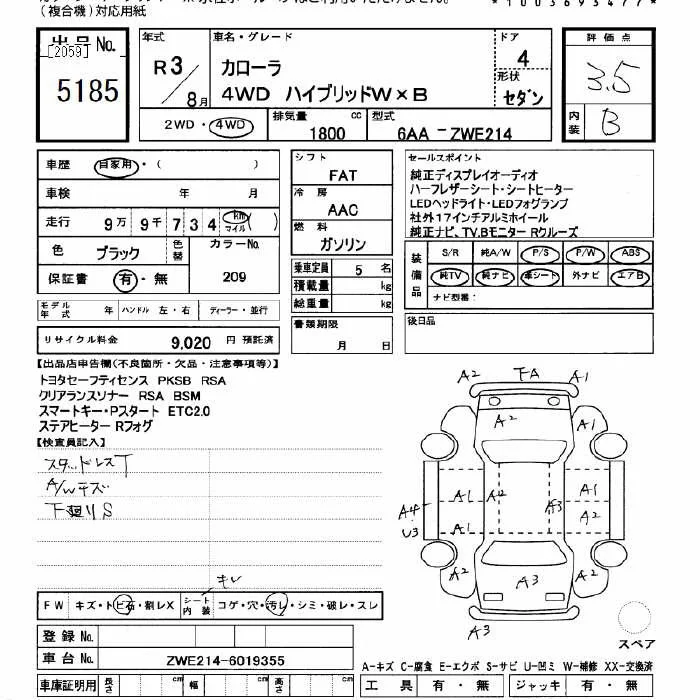 (複合機)対応用紙
*1003693477*
出品No.
[2059]
5185
年式
R3/8月
車名・グレード
カローラ
4WD ハイブリッドW×B
ドア
4
形状
セダン
評価点
3.5
内装
B
2WD・4WD
排気量
1800 cc
型式
6AA－ZWE214
車歴 自家用・( )
車検 年 月
走行 9万9千734 km マイル ( )
色 ブラック 色替 カラーNo.
保証書 有・無 209
モデル年式 年 ハンドル 左・右 ディーラー・並行
リサイクル料金 9,020円 預託済
シフト
FAT
冷房
AAC
燃料
ガソリン
乗車定員 5 名
積載量 kg
総重量 kg
書類期限
月 日
セールスポイント
純正ディスプレイオーディオ
ハーフレザーシート・シートヒーター
LEDヘッドライト・LEDフォグランプ
社外17インチアルミホイール
純正ナビ、TV.Bモニター Rクルーズ
装備品
S/R 純A/W P/S P/W ABS
純TV 純ナビ 革シート 外ナビ エアB
ナビ型番:
後日品
【出品店申告欄(不良箇所・欠品・注意事項等)】
トヨタセーフティセンス PKSB RSA
クリアランスソナー RSA BSM
スマートキー・Pスタート ETC2.0
ステアヒーター Rフォグ
【検査員記入】
スタッドレスT
A/Wキズ
下廻りS
キレ
FW キズ・トビ石・割レX シート内装 コゲ・穴・汚レ・シミ・破レ・スレ
登録No.
車台No. ZWE214-6019355
車庫証明用 長さ cm 幅 cm 高さ cm
A2 TA A1
A2 A1
A1 A2 A1
A4 A3 A2
U3 A1
A2 A3 A2
A3
スペア
A-キズ C-腐食 E-エクボ S-サビ U-凹ミ W-補修 XX-交換済
工具 有・無 ジャッキ 有・無